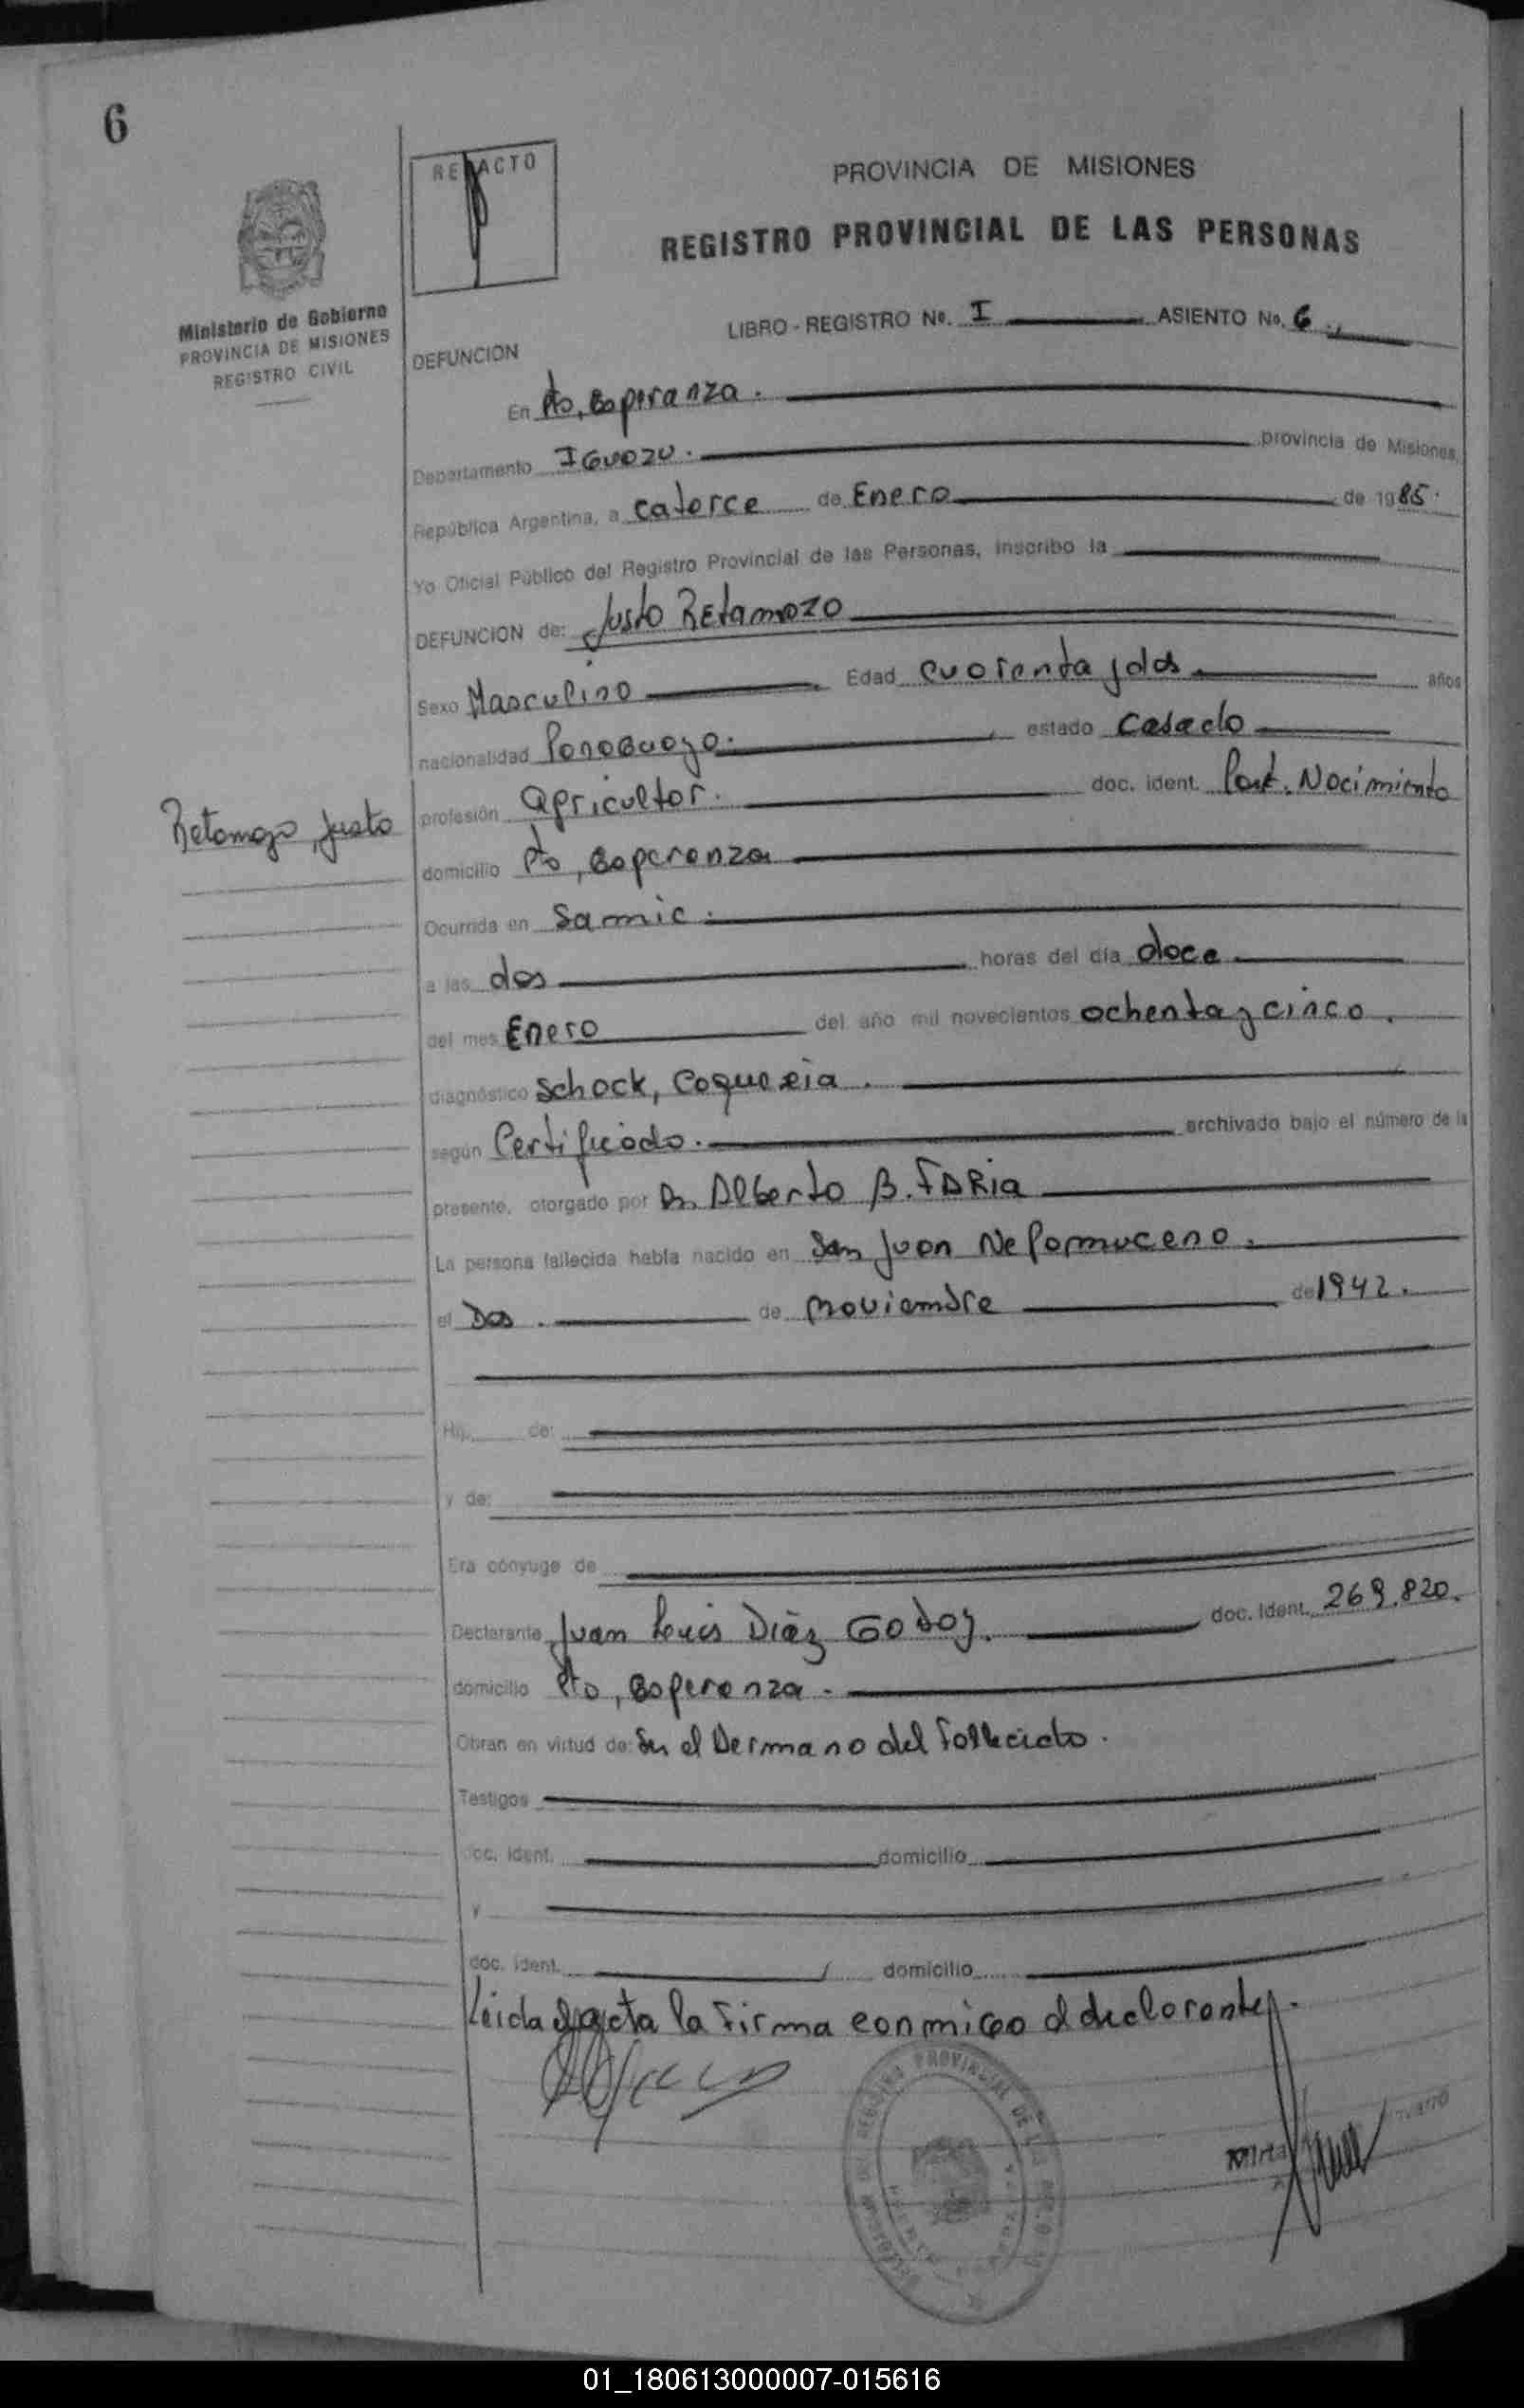 6
RE ACTO
PROVINCIA DE MISIONES
REGISTRO PROVINCIAL DE LAS PERSONAS
Ministerio de Gobierno
PROVINCIA DE MISIONES
REGISTRO CIVIL
LIBRO - REGISTRO Nº. I ASIENTO No. 6
DEFUNCION
En Pto, Esperanza.
Departamento Iguazu. provincia de Misiones,
República Argentina, a catorce de Enero de 1985.
Yo Oficial Público del Registro Provincial de las Personas, inscribo la
DEFUNCION de: Justo Retamozo
Sexo Masculino Edad cuarenta y dos años
nacionalidad Paraguayo. estado casado
Retamozo, Justo
profesión agricultor. doc. ident. Part. Nacimiento
domicilio Pto, Esperanza
Ocurrida en Samic.
a las dos horas del día doce
del mes Enero del año mil novecientos ochenta y cinco.
diagnóstico Schock, Coquexia.
según Certificado. archivado bajo el número de la
presente, otorgado por Dr. Alberto B. Faria
La persona fallecida había nacido en San Juan Nepomuceno.
el Dos. de noviembre de 1942.
Hij de:
y de:
Era cónyuge de
Declarante Juan Luis Diàz Godoy. doc. ident. 269.820.
domicilio Pto, Esperanza.
Obran en virtud de: Ser el Hermano del Fallecido.
Testigos
doc. ident. domicilio
y
doc. ident. domicilio
Leida el acta la firma conmigo el declarante.
REGISTRO PROVINCIAL DE LAS
Mirta
01_180613000007-015616